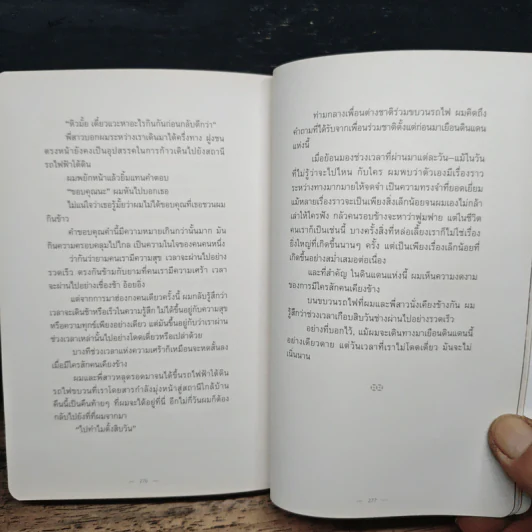 “หิวมั้ย เดี๋ยวแวะหาอะไรกินกันก่อนกลับดีกว่า”
พี่สาวบอกผมระหว่างเราเดินมาได้ครึ่งทาง ฝูงชน
ตรงหน้ายังคงเป็นอุปสรรคในการก้าวเดินไปยังสถานี
รถไฟฟ้าใต้ดิน
ผมพยักหน้าแล้วยิ้มแทนคำตอบ
“ขอบคุณนะ” ผมหันไปบอกเธอ
ไม่แน่ใจว่าเธอรู้มั้ยว่าผมไม่ได้ขอบคุณที่เธอชวนผม
กินข้าว
คำขอบคุณคำนี้มีความหมายเกินกว่านั้นมาก มัน
กินความครอบคลุมไปไกล เป็นความในใจของคนคนหนึ่ง
ว่ากันว่ายามคนเรามีความสุข เวลาจะผ่านไปอย่าง
รวดเร็ว ตรงกันข้ามกับยามที่คนเรามีความเศร้า เวลา
จะผ่านไปอย่างเชื่องช้า อ้อยอิ่ง
แต่จากการมาฮ่องกงคนเดียวครั้งนี้ ผมกลับรู้สึกว่า
เวลาจะเดินช้าหรือเร็วในความรู้สึก ไม่ได้ขึ้นอยู่กับความสุข
หรือความทุกข์เพียงอย่างเดียว แต่มันขึ้นอยู่กับว่าเราผ่าน
ช่วงเวลาเหล่านั้นไปอย่างโดดเดี่ยวหรือเปล่าด้วย
บางทีช่วงเวลาแห่งความเศร้าก็เหมือนจะหดสั้นลง
เมื่อมีใครสักคนเคียงข้าง
ผมและพี่สาวหลุดรอดมาจนได้ขึ้นรถไฟฟ้าใต้ดิน
รถไฟขบวนที่เราโดยสารกำลังมุ่งหน้าสู่สถานีใกล้บ้าน
คืนนี้เป็นคืนท้ายๆ ที่ผมจะได้อยู่ที่นี่ อีกไม่กี่วันผมก็ต้อง
กลับไปยังที่ที่ผมจากมา
“ไปทำไมตั้งสิบวัน”
ท่ามกลางเพื่อนต่างชาติร่วมขบวนรถไฟ ผมคิดถึง
คำถามที่ได้รับจากเพื่อนร่วมชาติตั้งแต่ก่อนมาเยือนดินแดน
แห่งนี้
เมื่อย้อนมองช่วงเวลาที่ผ่านมาแต่ละวัน–แม้ในวัน
ที่ไม่รู้ว่าจะไปไหน กับใคร ผมพบว่าตัวเองมีเรื่องราว
ระหว่างทางมากมายให้จดจำ เป็นความทรงจำที่ยอดเยี่ยม
แม้หลายเรื่องราวจะเป็นเพียงสิ่งเล็กน้อยจนผมเองไม่กล้า
เล่าให้ใครฟัง กลัวคนรอบข้างจะหาว่าฟูมฟาย แต่ในชีวิต
คนเราก็เป็นเช่นนี้ บางครั้งสิ่งที่หล่อเลี้ยงเราก็ไม่ใช่เรื่อง
ยิ่งใหญ่ที่เกิดขึ้นนานๆ ครั้ง แต่เป็นเพียงเรื่องเล็กน้อยที่
เกิดขึ้นอย่างสม่ำเสมอต่อเนื่อง
และที่สำคัญ ในดินแดนแห่งนี้ ผมเห็นความงดงาม
ของการมีใครสักคนเคียงข้าง
บนขบวนรถไฟที่ผมและพี่สาวนั่งเคียงข้างกัน ผม
รู้สึกว่าช่วงเวลาเกือบสิบวันช่างผ่านไปอย่างรวดเร็ว
อย่างที่บอกไว้, แม้ผมจะเดินทางมาเยือนดินแดนนี้
อย่างเดียวดาย แต่วันเวลาที่เราไม่โดดเดี่ยว มันจะไม่
เนิ่นนาน
277